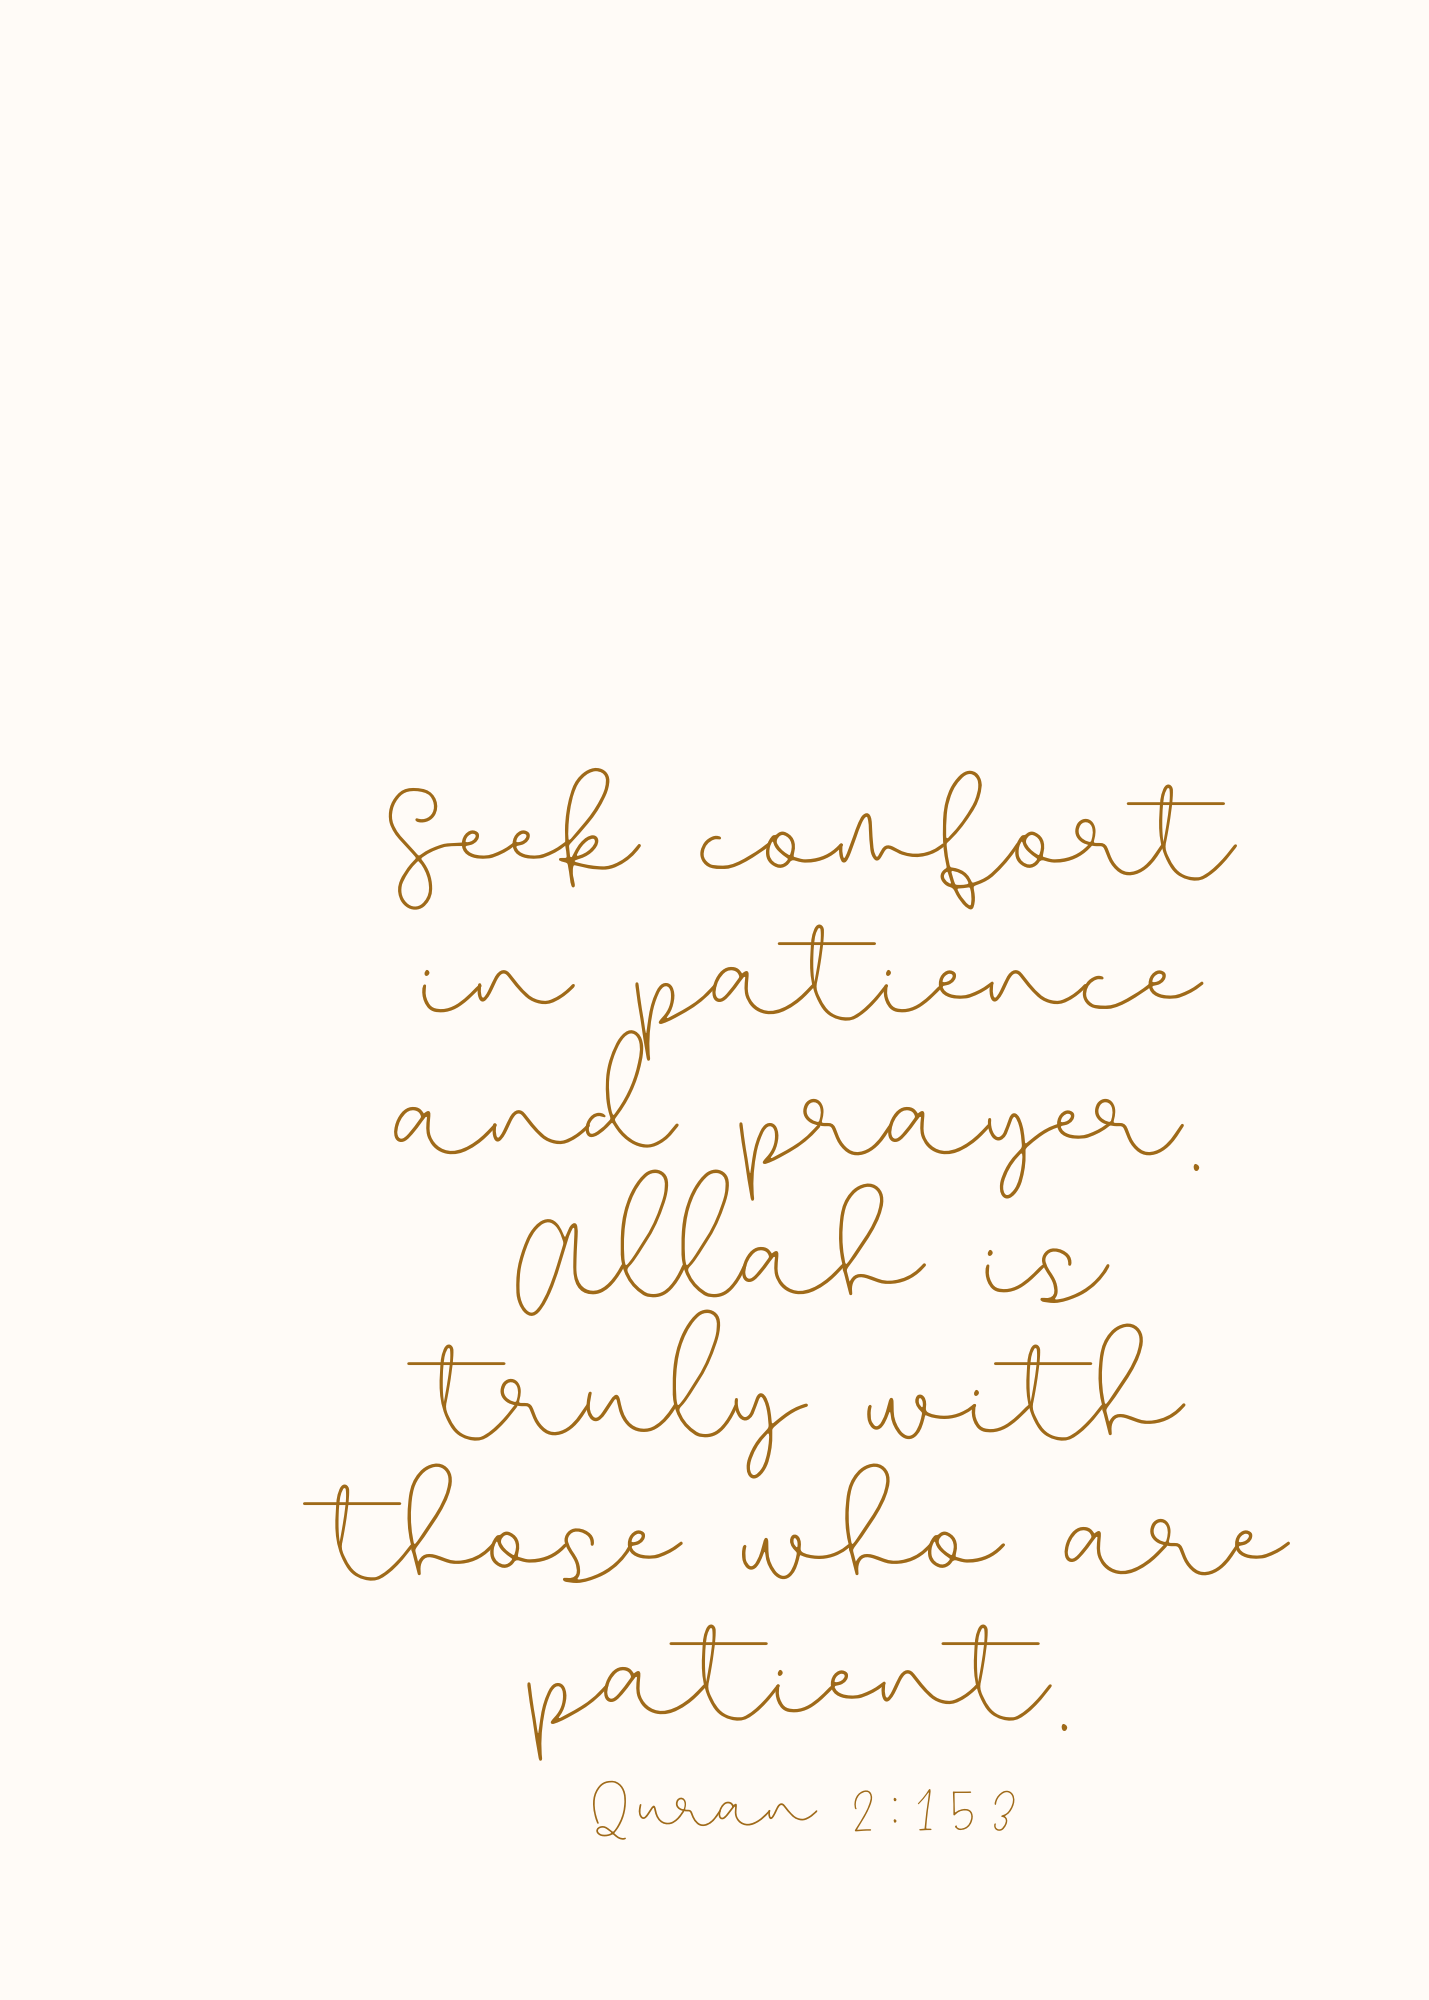 Seek comfort
in patience
and prayer.
Allah is
truly with
those who are
patient.
Quran 2:153